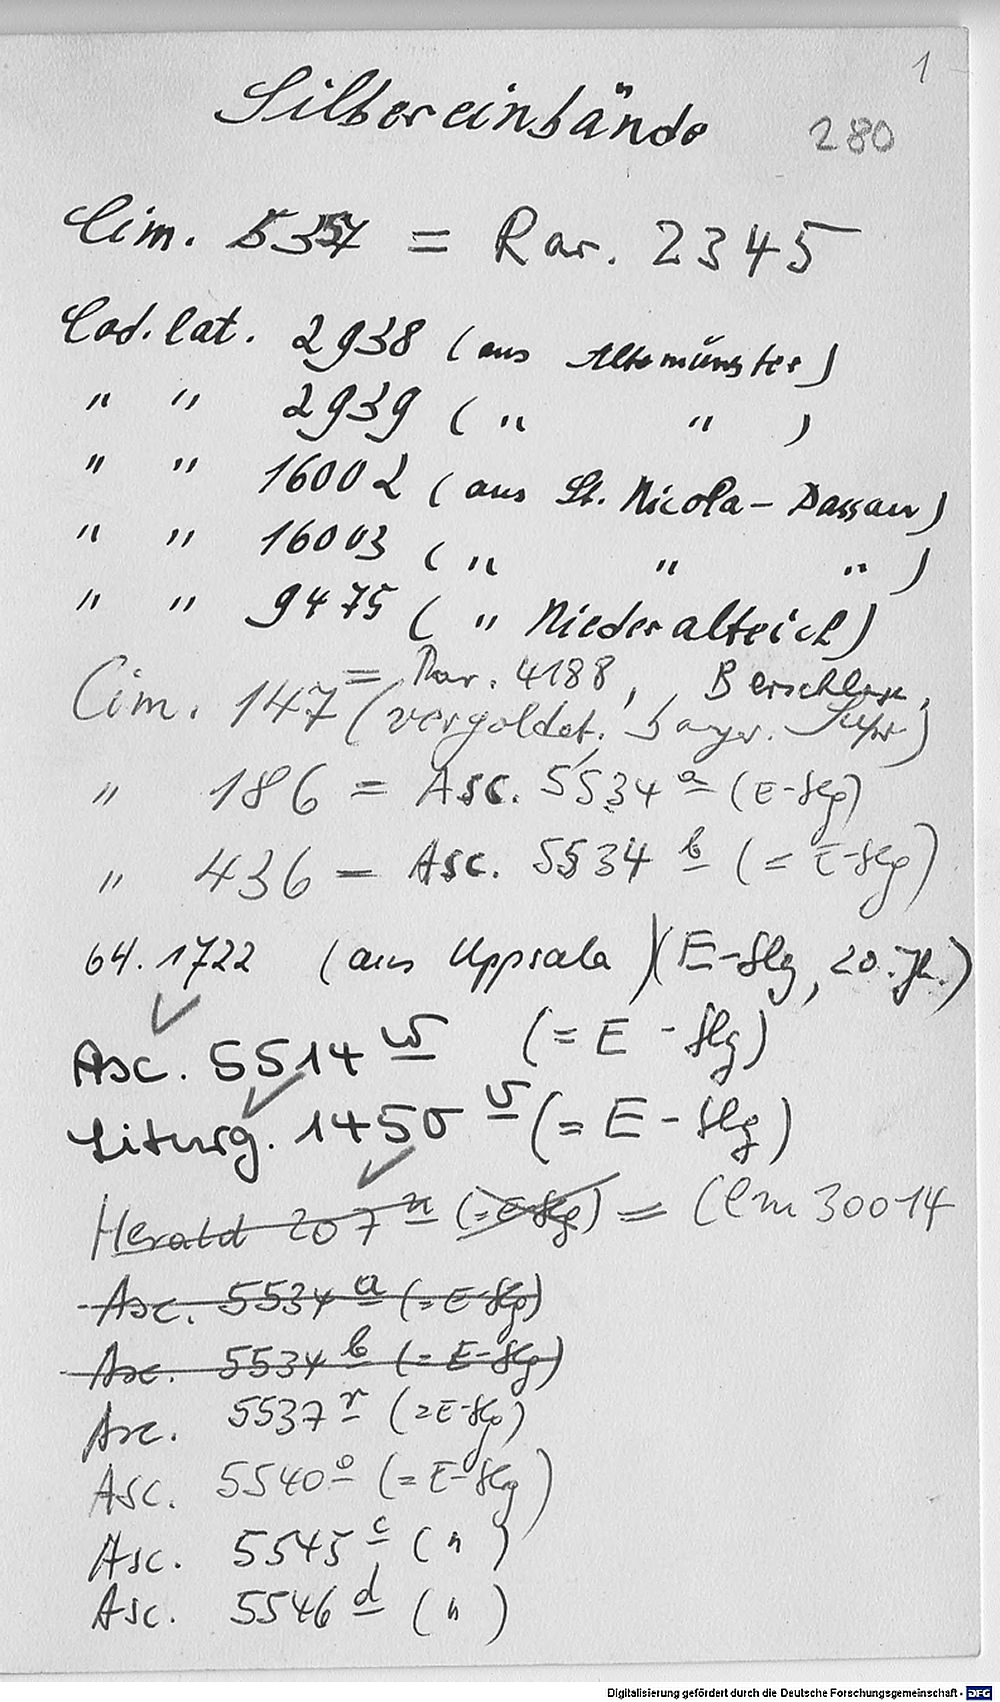 1
Silbereinbände 280
Cim. 5357 = Rar. 2345
Cod. lat. 2938 (aus Altomünster)
" " 2939 ( " " )
" " 16002 (aus St. Nicola - Passau)
" " 16003 ( " " " )
" " 9475 ( " Niederalteich)
= Rar. 4188,
Cim. 147 (vergoldet,
" 186 = Asc. 5534 a (E-Slg)
" 436 = Asc. 5534 b (= E-Slg)
64.1722 (aus Uppsala) (E-Slg, 20. Jh.)
Asc. 5514 w (= E - Slg)
Liturg. 1450 v (= E - Slg)
Herald 207 n (= E-Slg) = Clm 30014
Asc. 5534 a (= E-Slg)
Asc. 5534 b (= E-Slg)
Asc. 5537 r (= E-Slg)
Asc. 5540 o (= E-Slg)
Asc. 5545 c ( " )
Asc. 5546 d ( " )
Digitalisierung gefördert durch die Deutsche Forschungsgemeinschaft - DFG